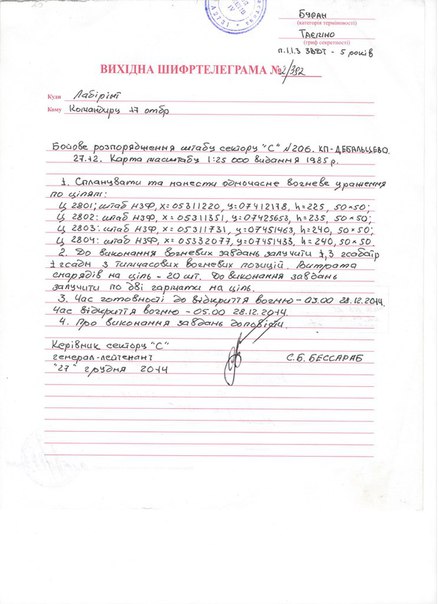 Буран
(категорія терміновості)
Таємно
(гриф секретності)
п. 1.1.3 ЗВДТ - 5 років
ВИХІДНА ШИФРТЕЛЕГРАМА № 2/392
Куди Лабіринт
Кому Командиру 17 отбр
Бойове розпорядження штабу сектору "С" №206. КП-ДЕБАЛЬЦЕВО.
27.12. Карта масштабу 1:25 000 видання 1985 р.
1. Спланувати та нанести одночасне вогневе ураження
по цілям:
Ц 2801: штаб НЗФ, х=05311220, у=07412178, h=225, 50×50;
Ц 2802: штаб НЗФ, х=05311351, у=07425653, h=235, 50×50;
Ц 2803: штаб НЗФ, х=05311731, у=07451463, h=240, 50×50;
Ц 2804: штаб НЗФ, х=05332077, у=07451433, h=240, 50×50.
2. До виконання вогневих завдань залучити 1,3 гсабатр
1 гсадн з тимчасових вогневих позицій. Витрата
снарядів на ціль - 20 шт. До виконання завдань
залучити по дві гармати на ціль.
3. Час готовності до відкриття вогню - 03.00 28.12.2014.
Час відкриття вогню - 05.00 28.12.2014.
4. Про виконання завдань доповісти.
Керівник сектору "С"
генерал-лейтенант
С.Б. БЕССАРАБ
"27" грудня 2014